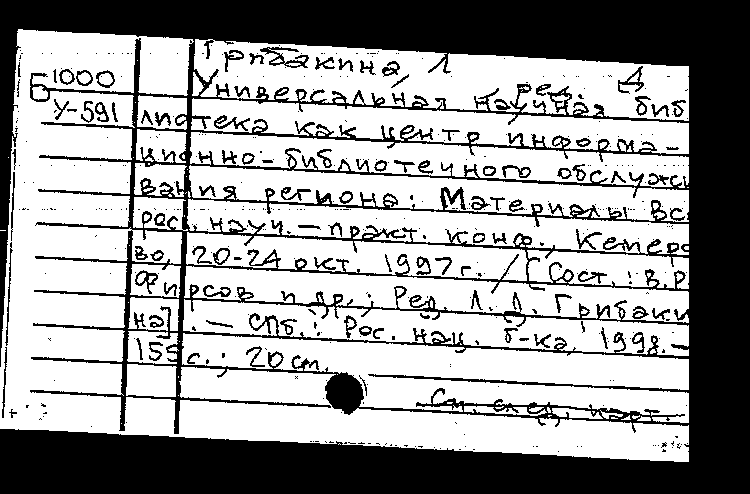 Грибакина, Л
Б 1000 Универсальная научная биб
ред.
У-591 лиотека как центр информа-
ционно-библиотечного обслужи
вания региона: Материалы Все
рос. науч.-практ. конф., Кемеро
во, 20-24 окт. 1997 г. / [Сост.: В.Р.
Фирсов и др.; Ред. Л. Д. Грибаки
на]. — СПб.: Рос. нац. б-ка, 1998.—
155 с.; 20 см.
См. след. карт.